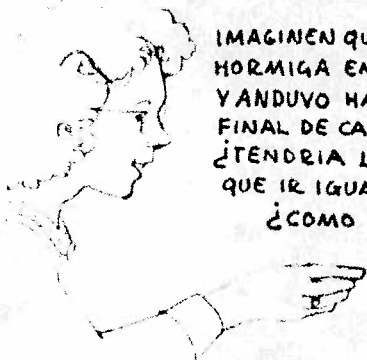 IMAGINEN QU
HORMIGA EN
Y ANDUVO HA
FINAL DE CA
¿TENDRIA L
QUE IR IGUA
¿COMO